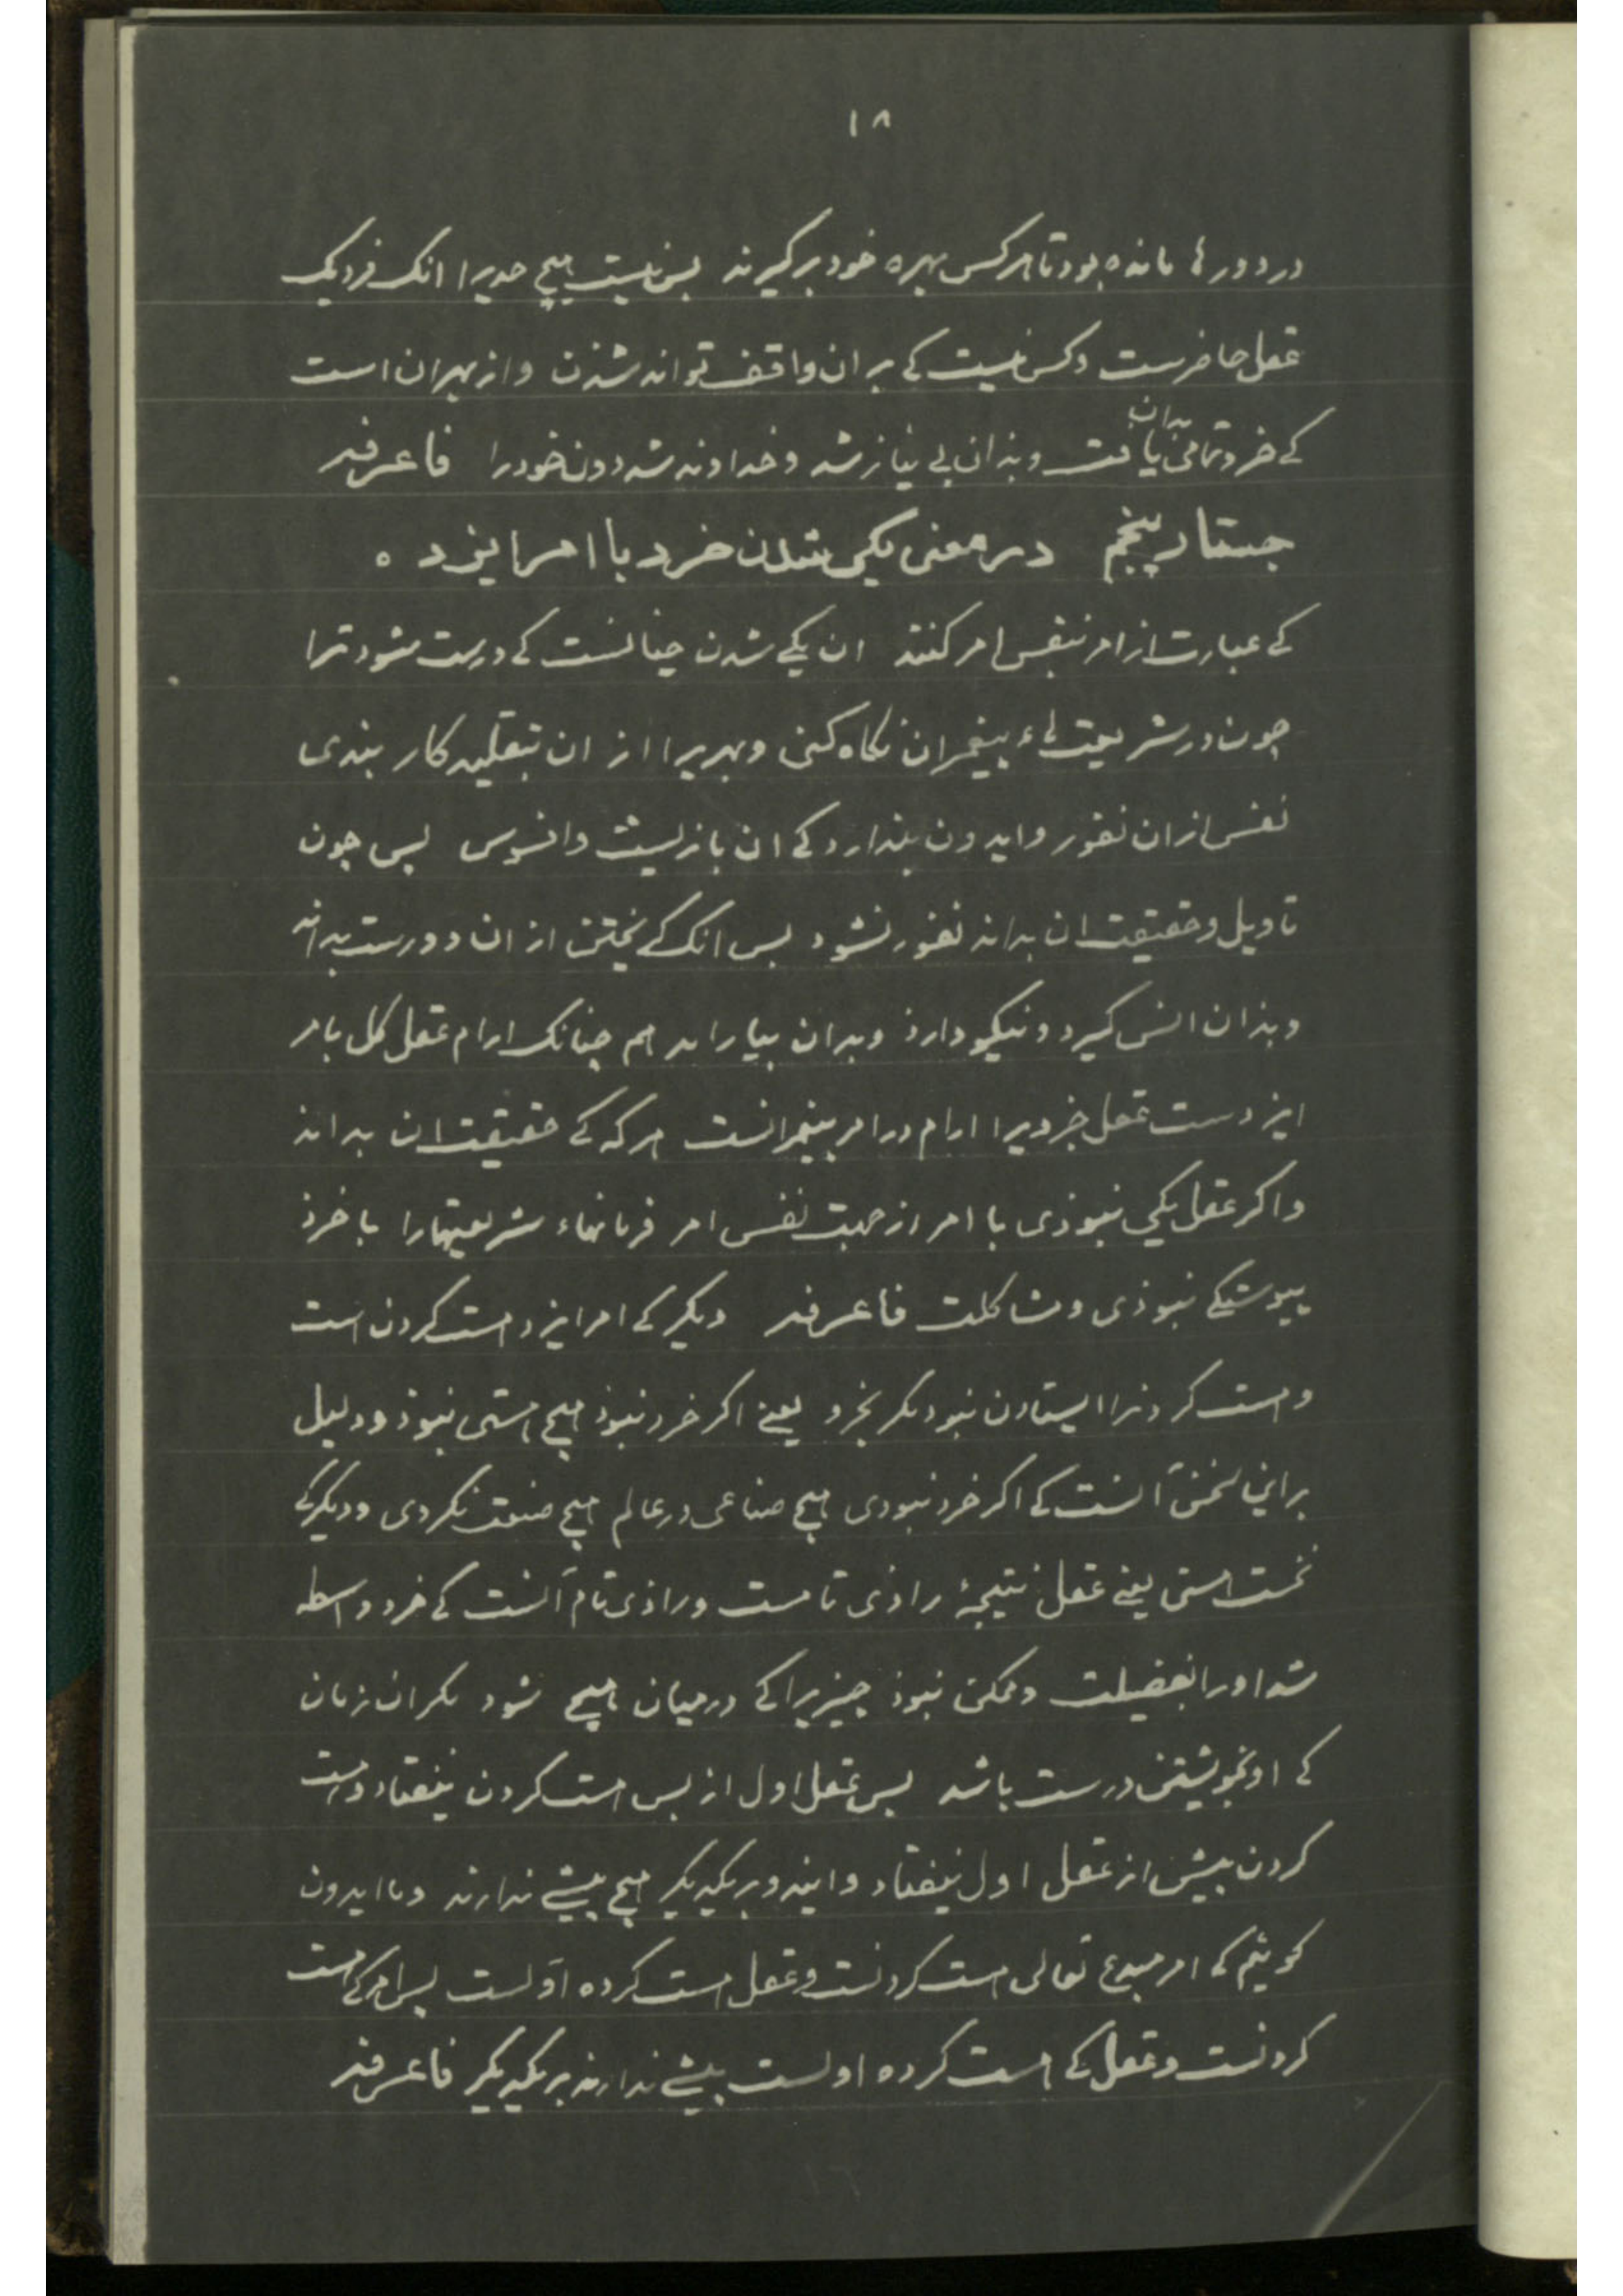 ۱۸
در دورها مانده بود تا هر کس بهره خود برگیرند پس نیست هیچ حدیرا انک نزدیک
عقل حاضرست و کس نیست کی بر ان واقف تواند شدن و از بهر ان است
کی خرد تمامی بدان یافت و بذان بی نیاز شد و خداوند شد دون خود را فاعرفه
جستار پنجم در معنی یکی شدن خرد با امر ایزد ه
کی عبارت از امر بنفس امر کنند ان یکی شدن چنانست کی درست شود ترا
چون در شریعت هاء پیغمبران نکاه کنی و بهریرا از ان بتقلید کار بندی
نفس از ان نفور و ایدون پندارد کی ان بازیست و افسوس پس چون
تاویل و حقیقت ان بداند نفور نشود پس انک کی نختین از ان دورست بداند
و بذان انس کیرد و نیکو دارذ و بدان بیاراید هم چنانک ارام عقل کل بامر
ایزدست عقل جزویرا ارام در امر پیغمبرانست هر که کی حقیقت ان بداند
و اکر عقل یکی نبوذی با امر از جهت نفس امر فرمانهاء شریعتهارا با خرذ
پیوستکی نبوذی و مشاکلت فاعرفه دیکر کی امر ایزد هست کردن است
و هست کردنرا ایستادن نبود مکر بخرد یعنی اکر خرد نبوذ هیچ هستی نبوذ و دلیل
براین سخن آنست کی اکر خرد نبودی هیچ صناعی در عالم هیچ صنعت نکردی و دیکر کی
نخست هستی یعنی عقل نتیجهٔ راذی تامست و راذی تام آنست کی خرد واسطه
شد او را بفضیلت و ممکن نبوذ چیزیرا کی در میان هیچ شود مکر ان زمان
کی او بخویشتن درست باشد پس عقل اول از پس هست کردن نیفتاد و هست
کردن پیش از عقل اول نیفتاد و ایندو بر یکدیکر هیچ پیشی ندارند و ما ایدون
کوئیم که امر مبدع تعالی هست کردنست و عقل هست کرده اولست پس امر کی هست
کردنست و عقل کی هست کرده اولست پیشی ندارند بر یکدیکر فاعرفه